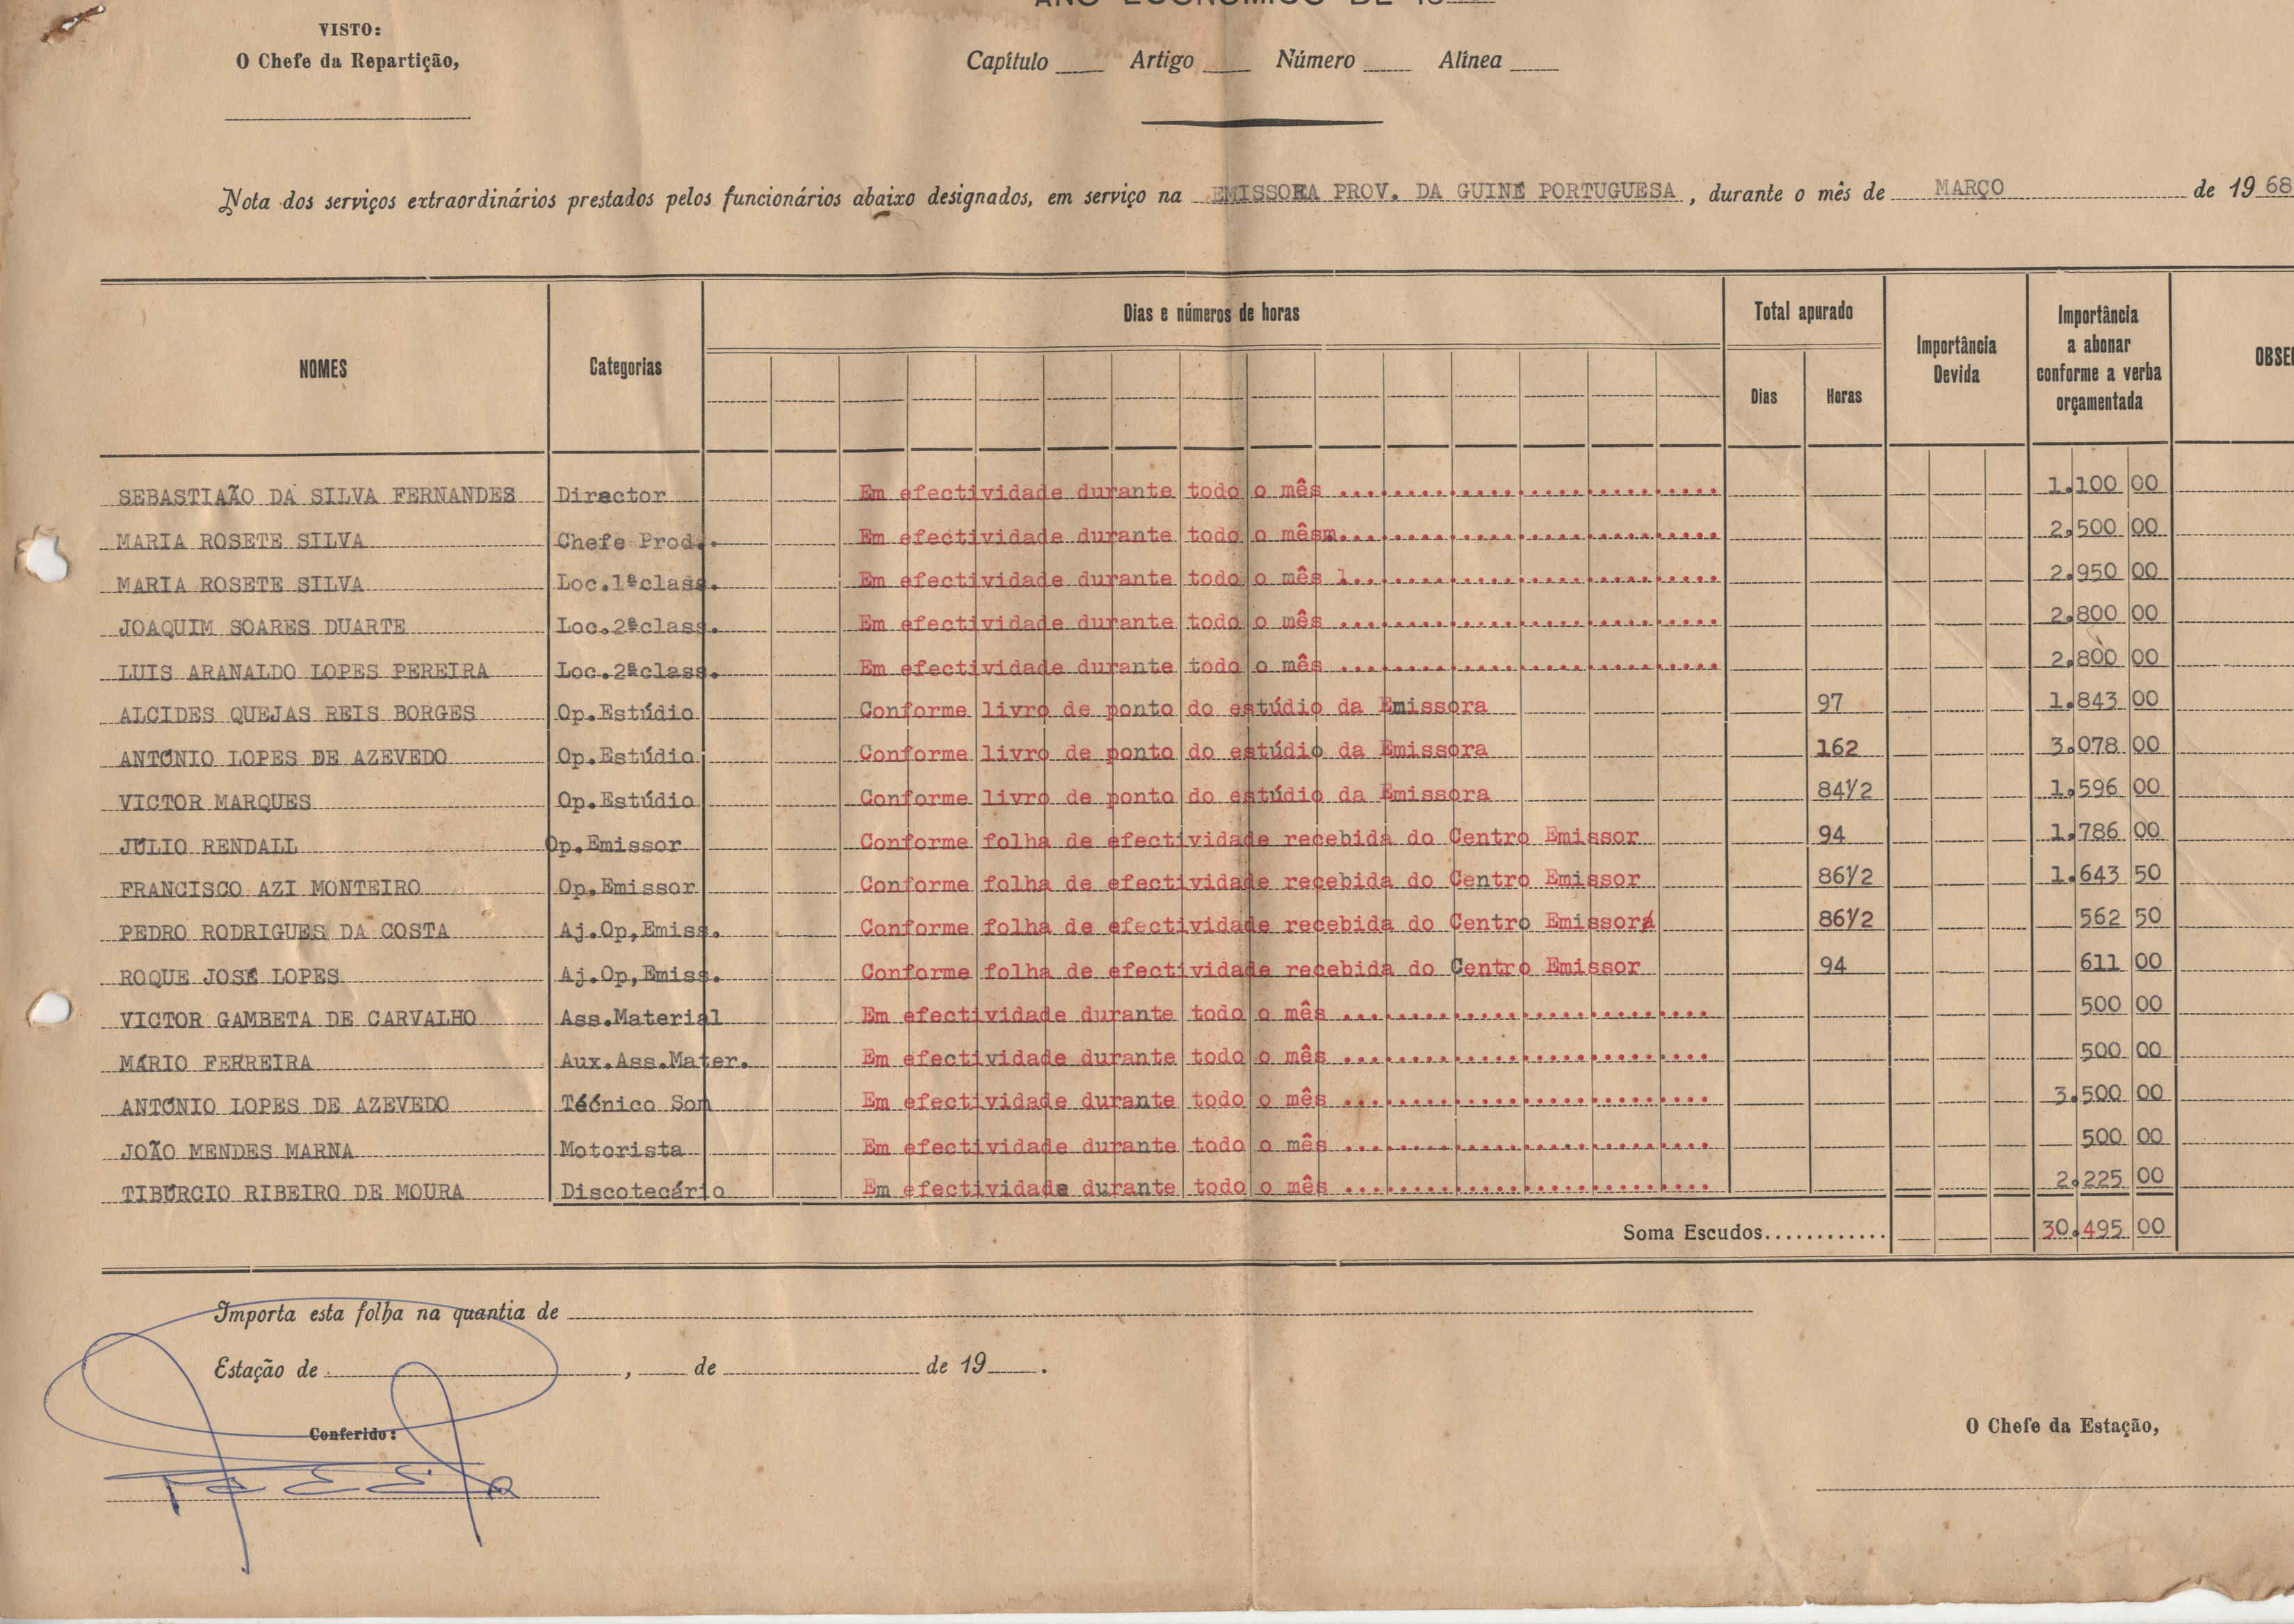 VISTO:
O Chefe da Repartição,
ANO ECONÓMICO DE 19
Capítulo Artigo Número Alínea
Nota dos serviços extraordinários prestados pelos funcionários abaixo designados, em serviço na EMISSORA PROV. DA GUINÉ PORTUGUESA, durante o mês de MARÇO de 1968
NOMES Categorias Dias e números de horas Total apurado Dias Horas Importância Devida Importância a abonar conforme a verba orçamentada
SEBASTIAÃO DA SILVA FERNANDES Director Em efectividade durante todo o mês ........................... 1.100 00
MARIA ROSETE SILVA Chefe Prod.. Em efectividade durante todo o mêsm........................... 2.500 00
MARIA ROSETE SILVA Loc.1ªclass. Em efectividade durante todo o mês l.......................... 2.950 00
JOAQUIM SOARES DUARTE Loc.2ªclass. Em efectividade durante todo o mês ........................... 2.800 00
LUIS ARANALDO LOPES PEREIRA Loc.2ªclass. Em efectividade durante todo o mês ........................... 2.800 00
ALCIDES QUEJAS REIS BORGES Op.Estúdio Conforme livro de ponto do estúdio da Emissora 97 1.843 00
ANTÓNIO LOPES DE AZEVEDO Op.Estúdio Conforme livro de ponto do estúdio da Emissora 162 3.078 00
VICTOR MARQUES Op.Estúdio Conforme livro de ponto do estúdio da Emissora 84½ 1.596 00
JÚLIO RENDALL Op.Emissor Conforme folha de efectividade recebida do Centro Emissor 94 1.786 00
FRANCISCO AZI MONTEIRO Op.Emissor Conforme folha de efectividade recebida do Centro Emissor 86½ 1.643 50
PEDRO RODRIGUES DA COSTA Aj.Op,Emiss. Conforme folha de efectividade recebida do Centro Emissora 86½ 562 50
ROQUE JOSÉ LOPES Aj.Op,Emiss. Conforme folha de efectividade recebida do Centro Emissor 94 611 00
VICTOR GAMBETA DE CARVALHO Ass.Material Em efectividade durante todo o mês .......................... 500 00
MÁRIO FERREIRA Aux.Ass.Mater. Em efectividade durante todo o mês .......................... 500 00
ANTÓNIO LOPES DE AZEVEDO Técnico Som Em efectividade durante todo o mês .......................... 3.500 00
JOÃO MENDES MARNA Motorista Em efectividade durante todo o mês .......................... 500 00
TIBÚRCIO RIBEIRO DE MOURA Discotecário Em efectividade durante todo o mês .......................... 2.225 00
Soma Escudos............ 30.495 00
Importa esta folha na quantia de
Estação de , de de 19 .
Conferido:
O Chefe da Estação,